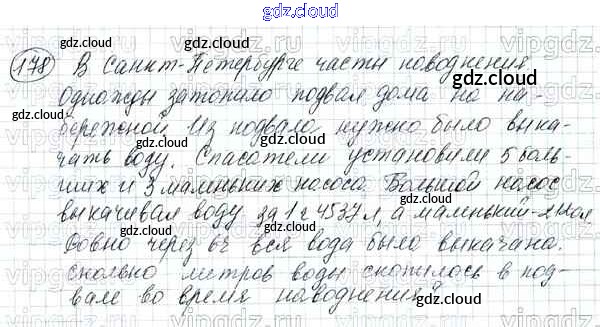 gdz.cloud
178 В Санкт-Петербурге часты наводнения
Однажды затопило подвал дома на на-
бережной Из подвала нужно было выка-
чать воду. Спасатели установили 5 боль-
ших и 3 маленьких насоса. Большой насос
выкачивал воду за 1 ч 4537 л, а маленький -
Ровно через 6ч вся вода было выкачана.
Сколько метров воды скопилось в под-
вале во время наводнения?
gdz.cloud